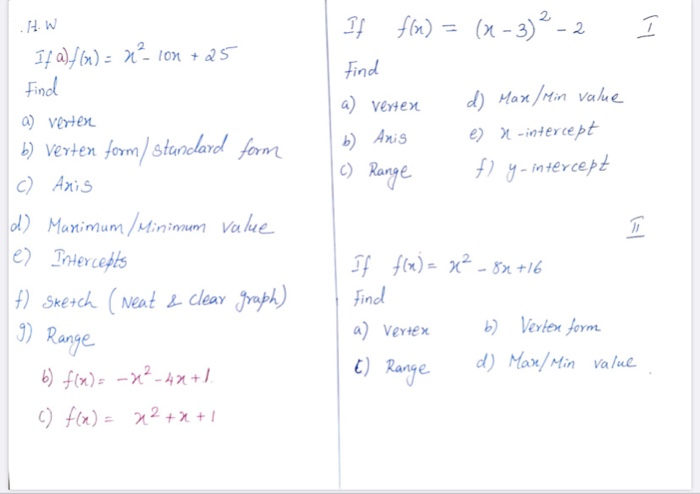 .H.W
If a) f(x) = x² - 10x + 25
Find
a) vertex
b) vertex form/standard form
c) Axis
d) Maximum/Minimum value
e) Intercepts
f) Sketch (Neat & clear graph)
g) Range
b) f(x) = -x² - 4x + 1.
c) f(x) = x² + x + 1
If f(x) = (x - 3)² - 2 I
Find
a) vertex d) Max/Min value
b) Axis e) x-intercept
c) Range f) y-intercept
II
If f(x) = x² - 8x + 16
Find
a) vertex b) Vertex form
c) Range d) Max/Min value.